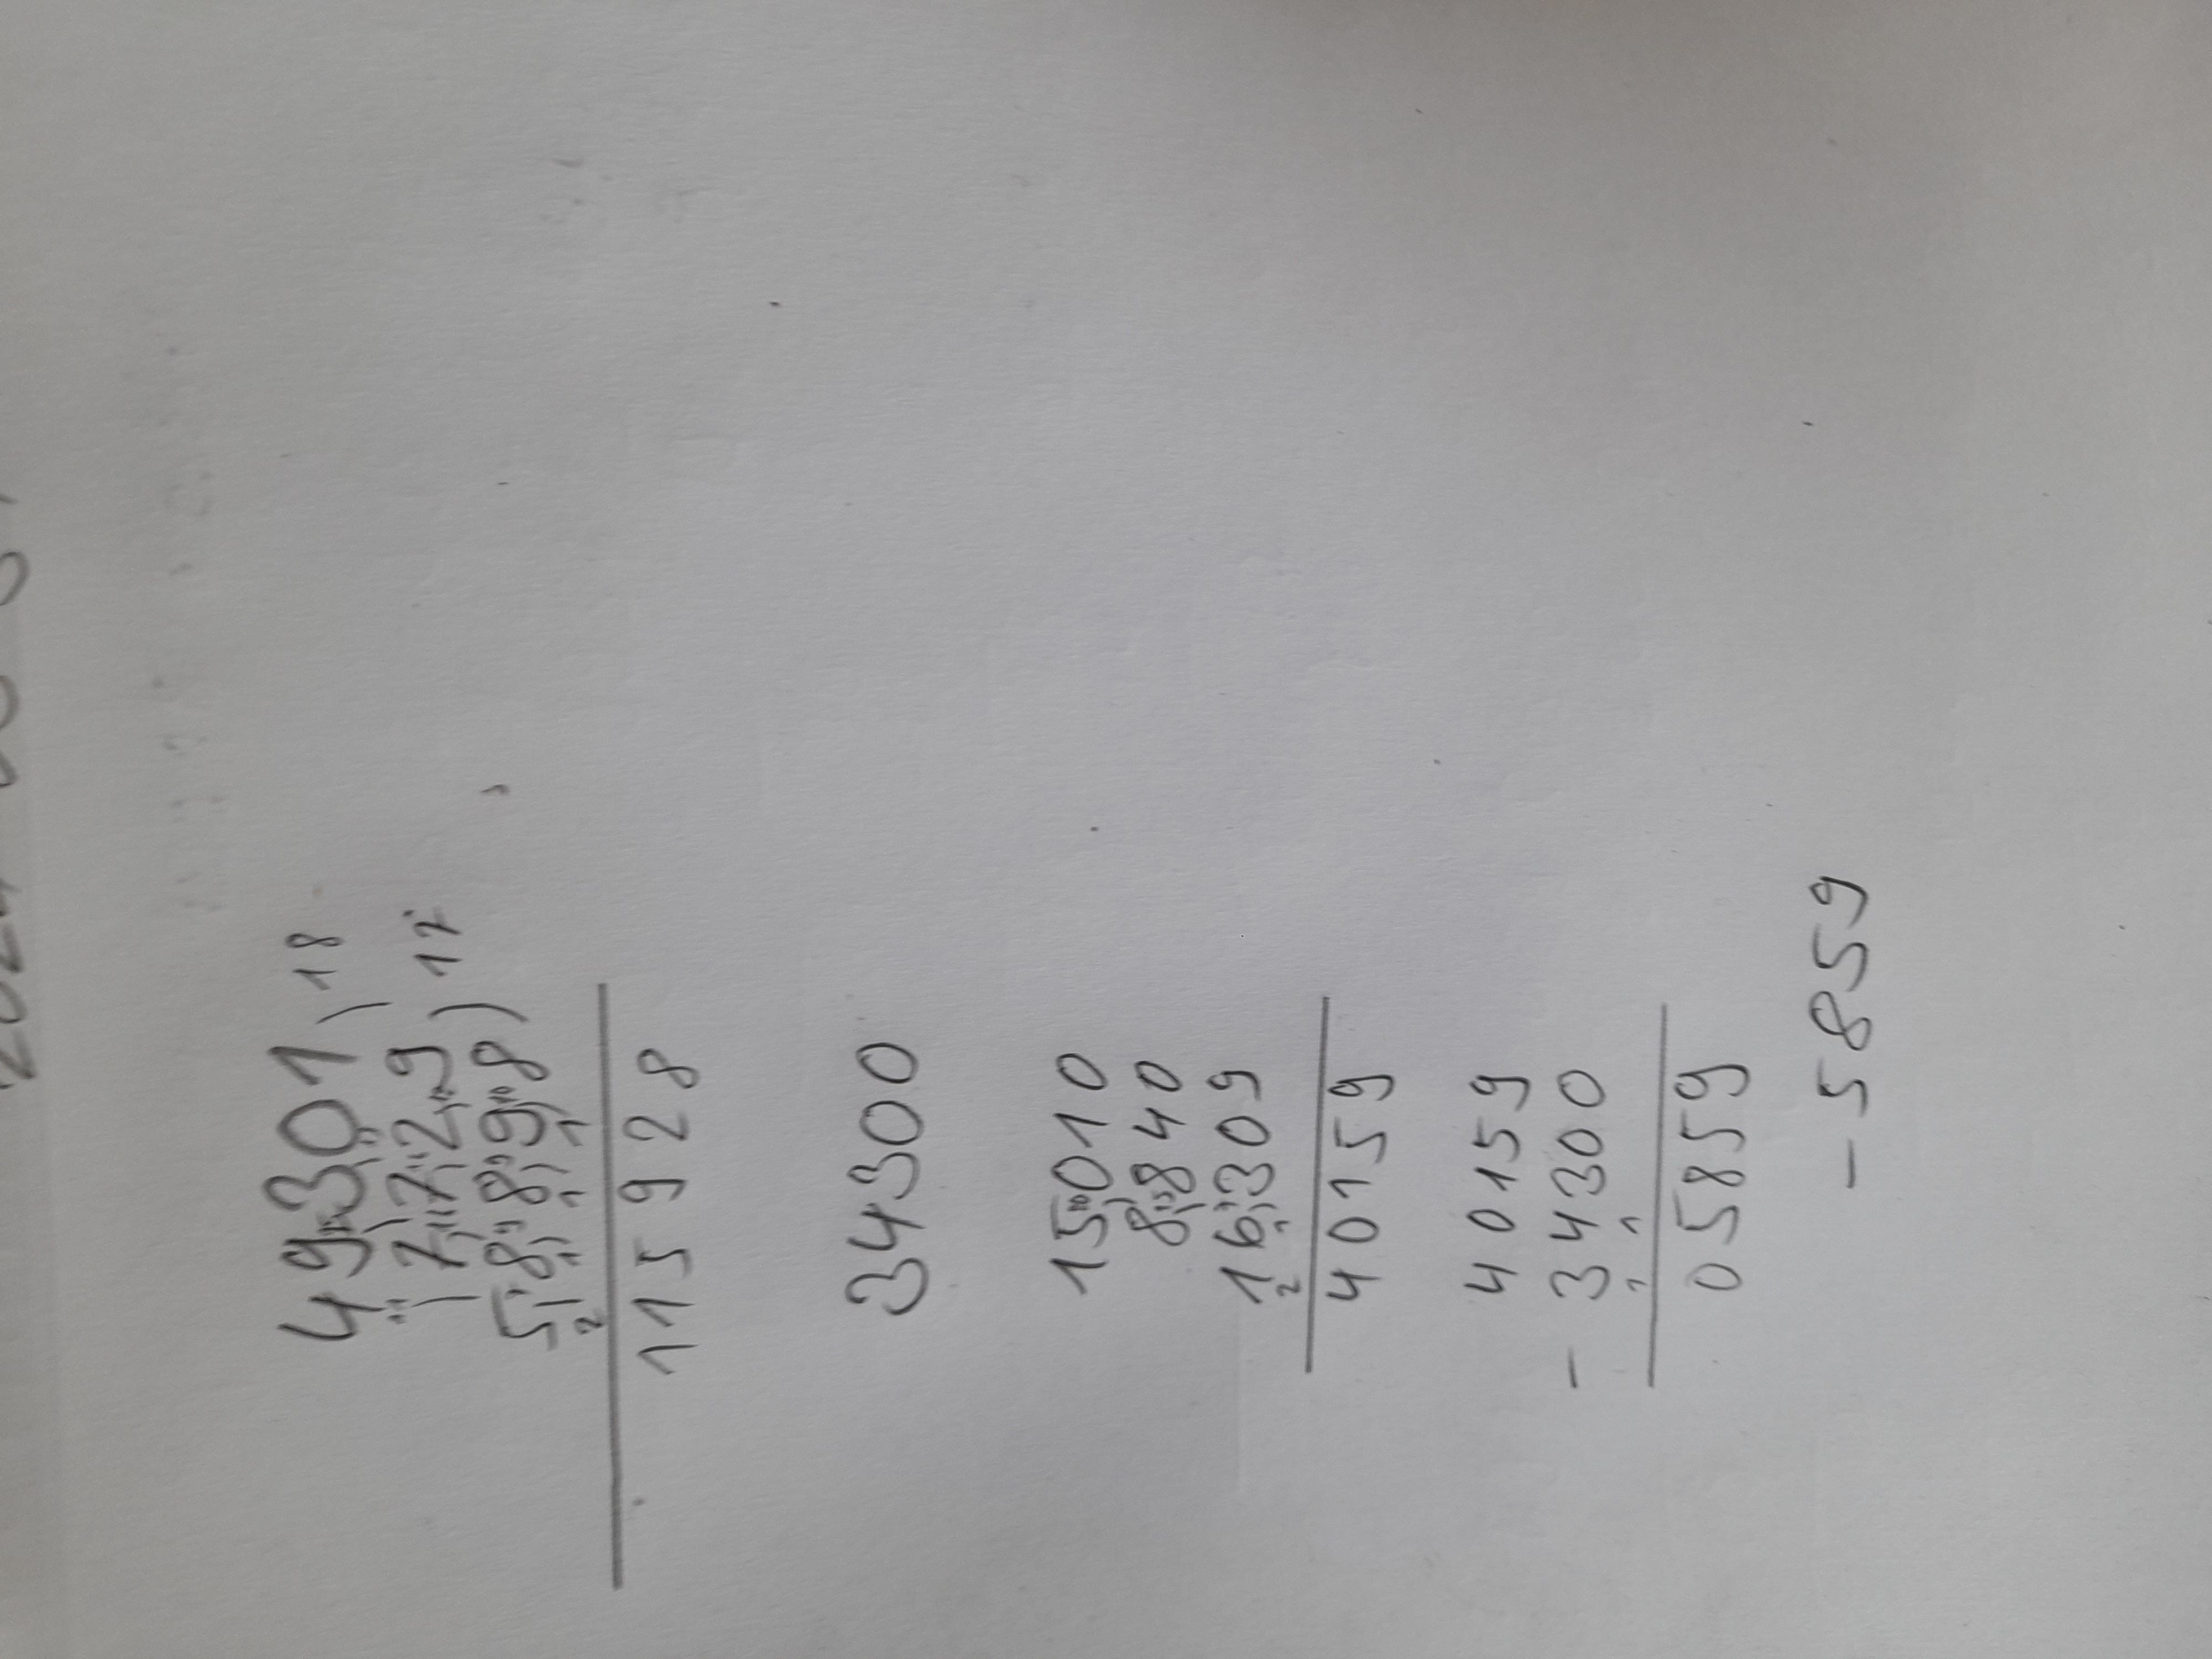 49301 ) 18
7729 ) 17
58898
2 1 1 1
115928
34300
15010
8840
16309
2 1
40159
40159
- 34300
1 1
05859
- 5859